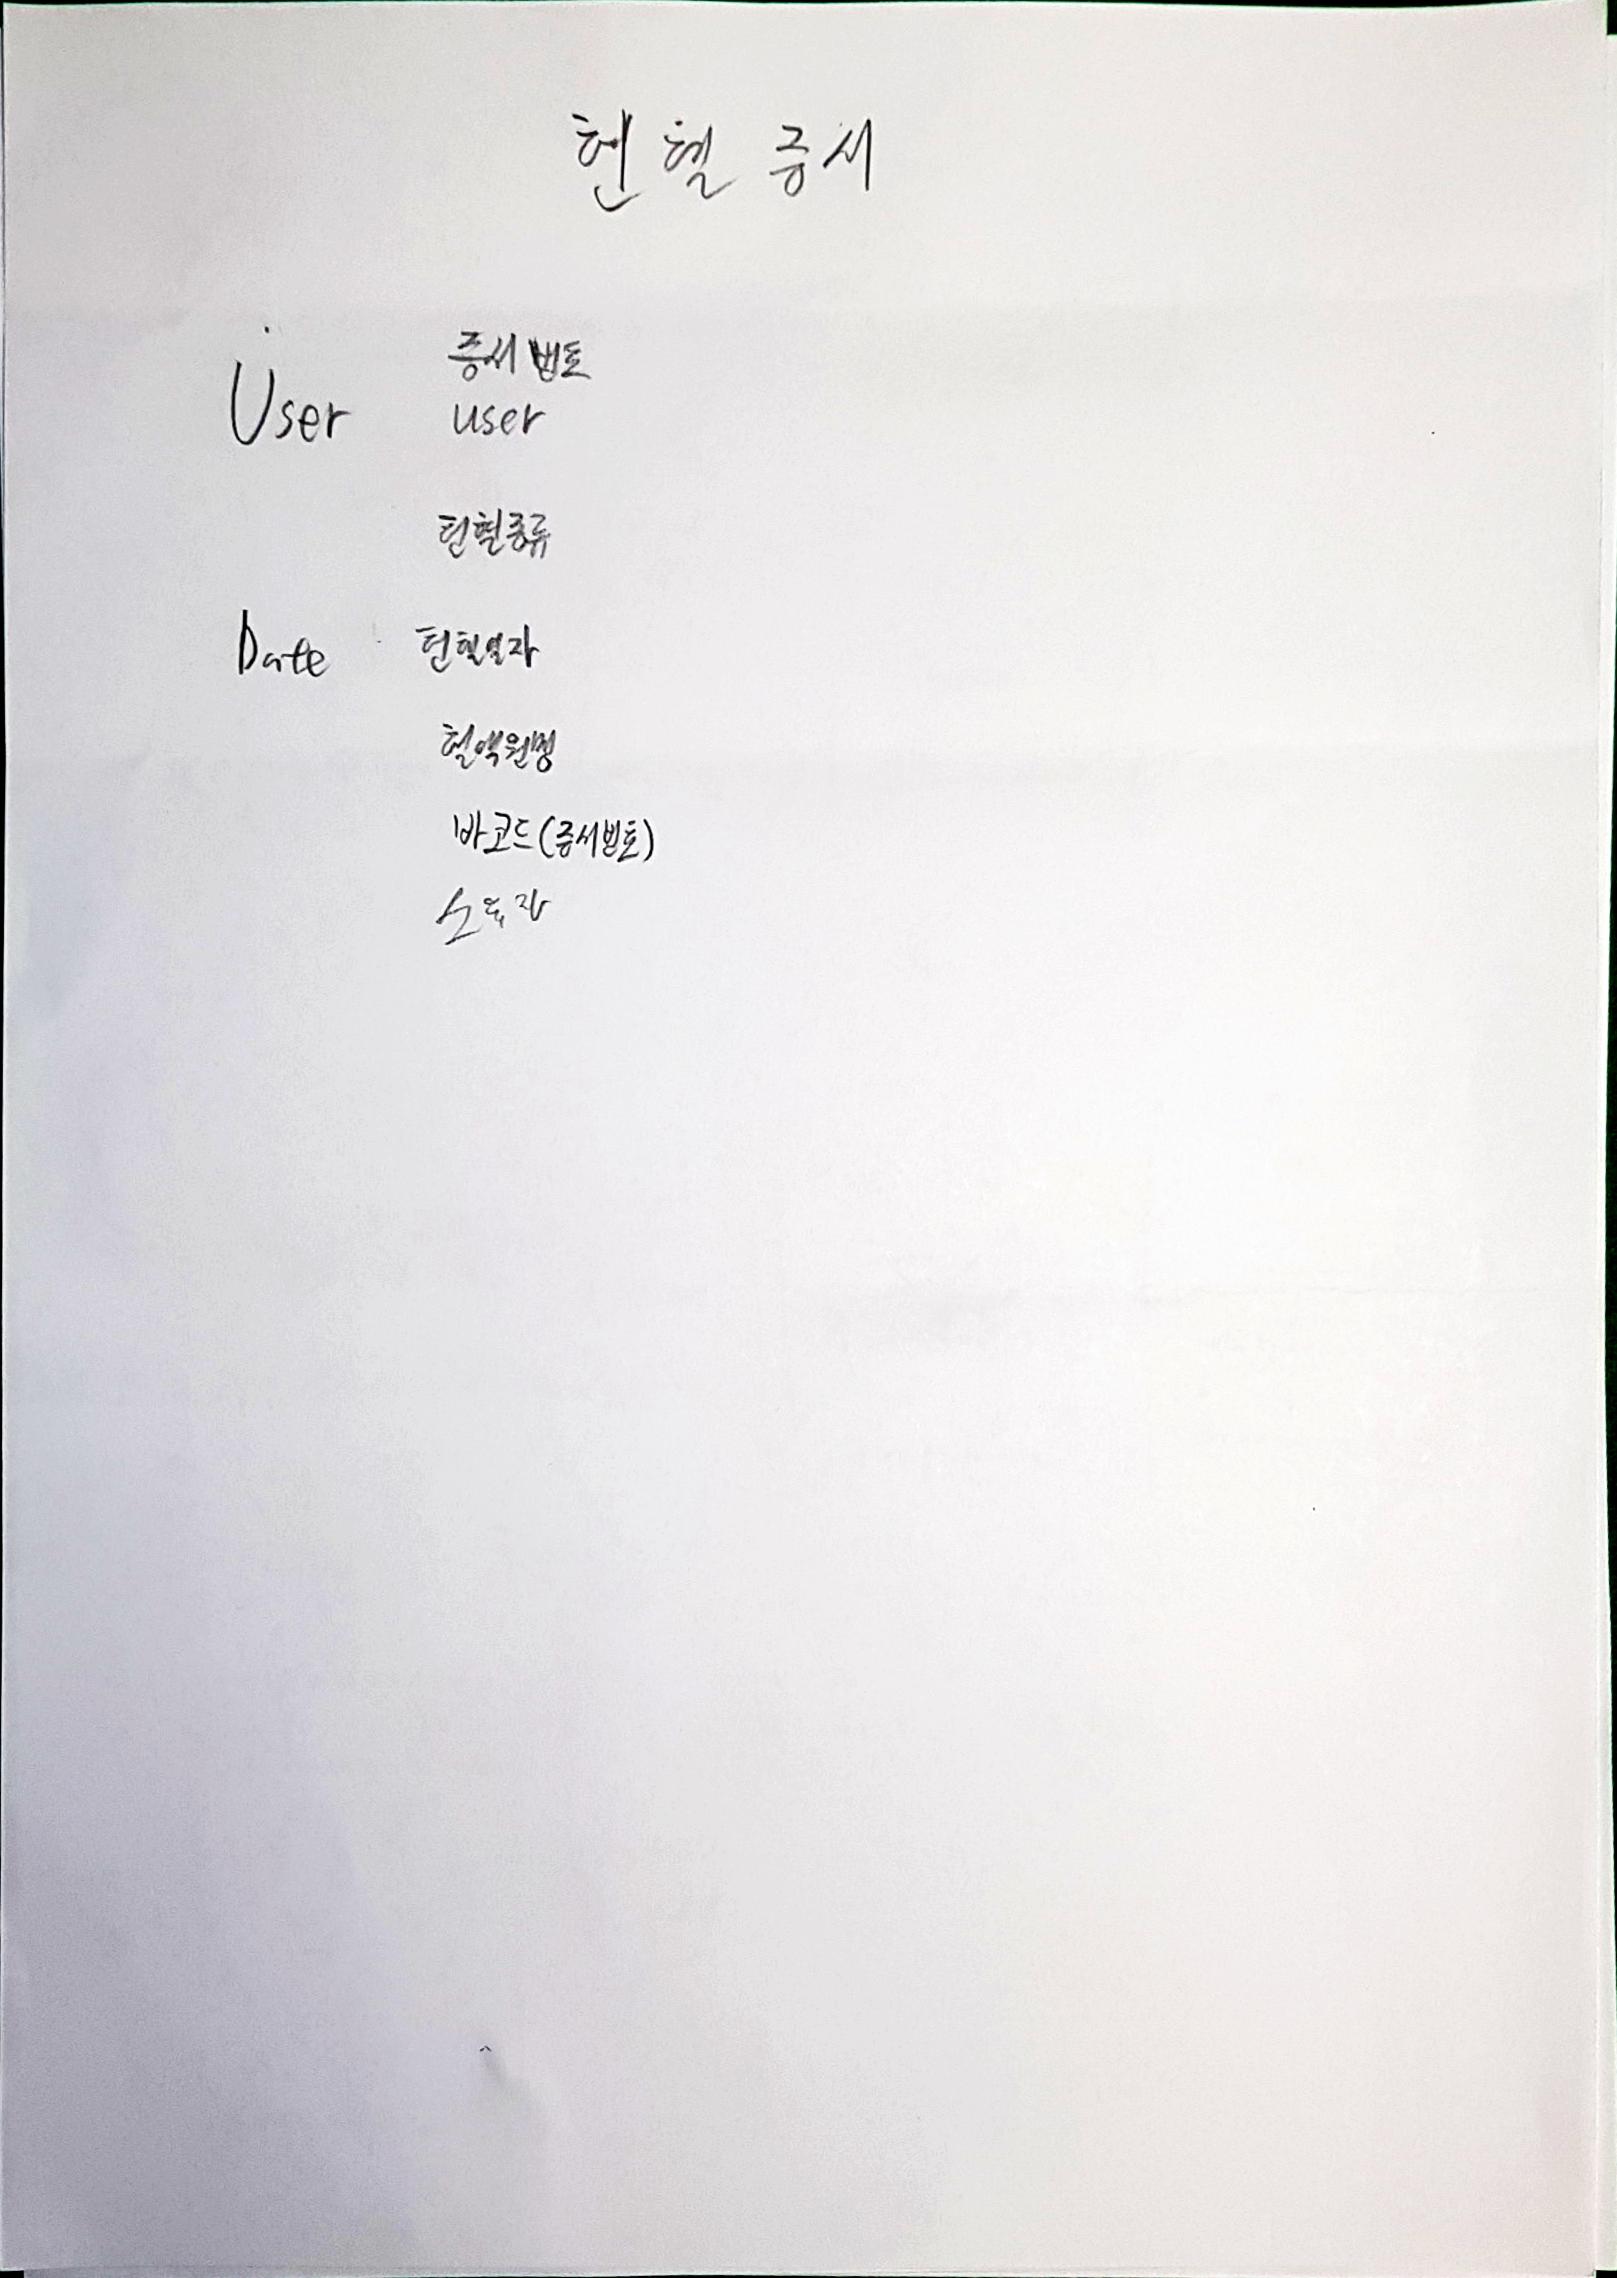 헌혈증서
증서번호
User user
헌혈종류
Date 헌혈일자
혈액원명
바코드(증서번호)
소유자